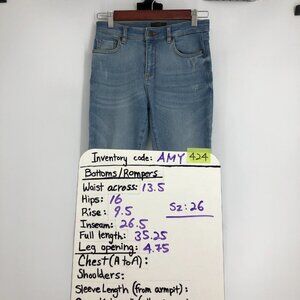 Inventory code: AMY 424
Bottoms/Rompers
Waist across: 13.5
Hips: 16
Rise: 9.5
Sz: 26
Inseam: 26.5
Full length: 35.25
Leg opening: 4.75
Chest (A to A):
Shoulders:
Sleeve Length (from armpit):